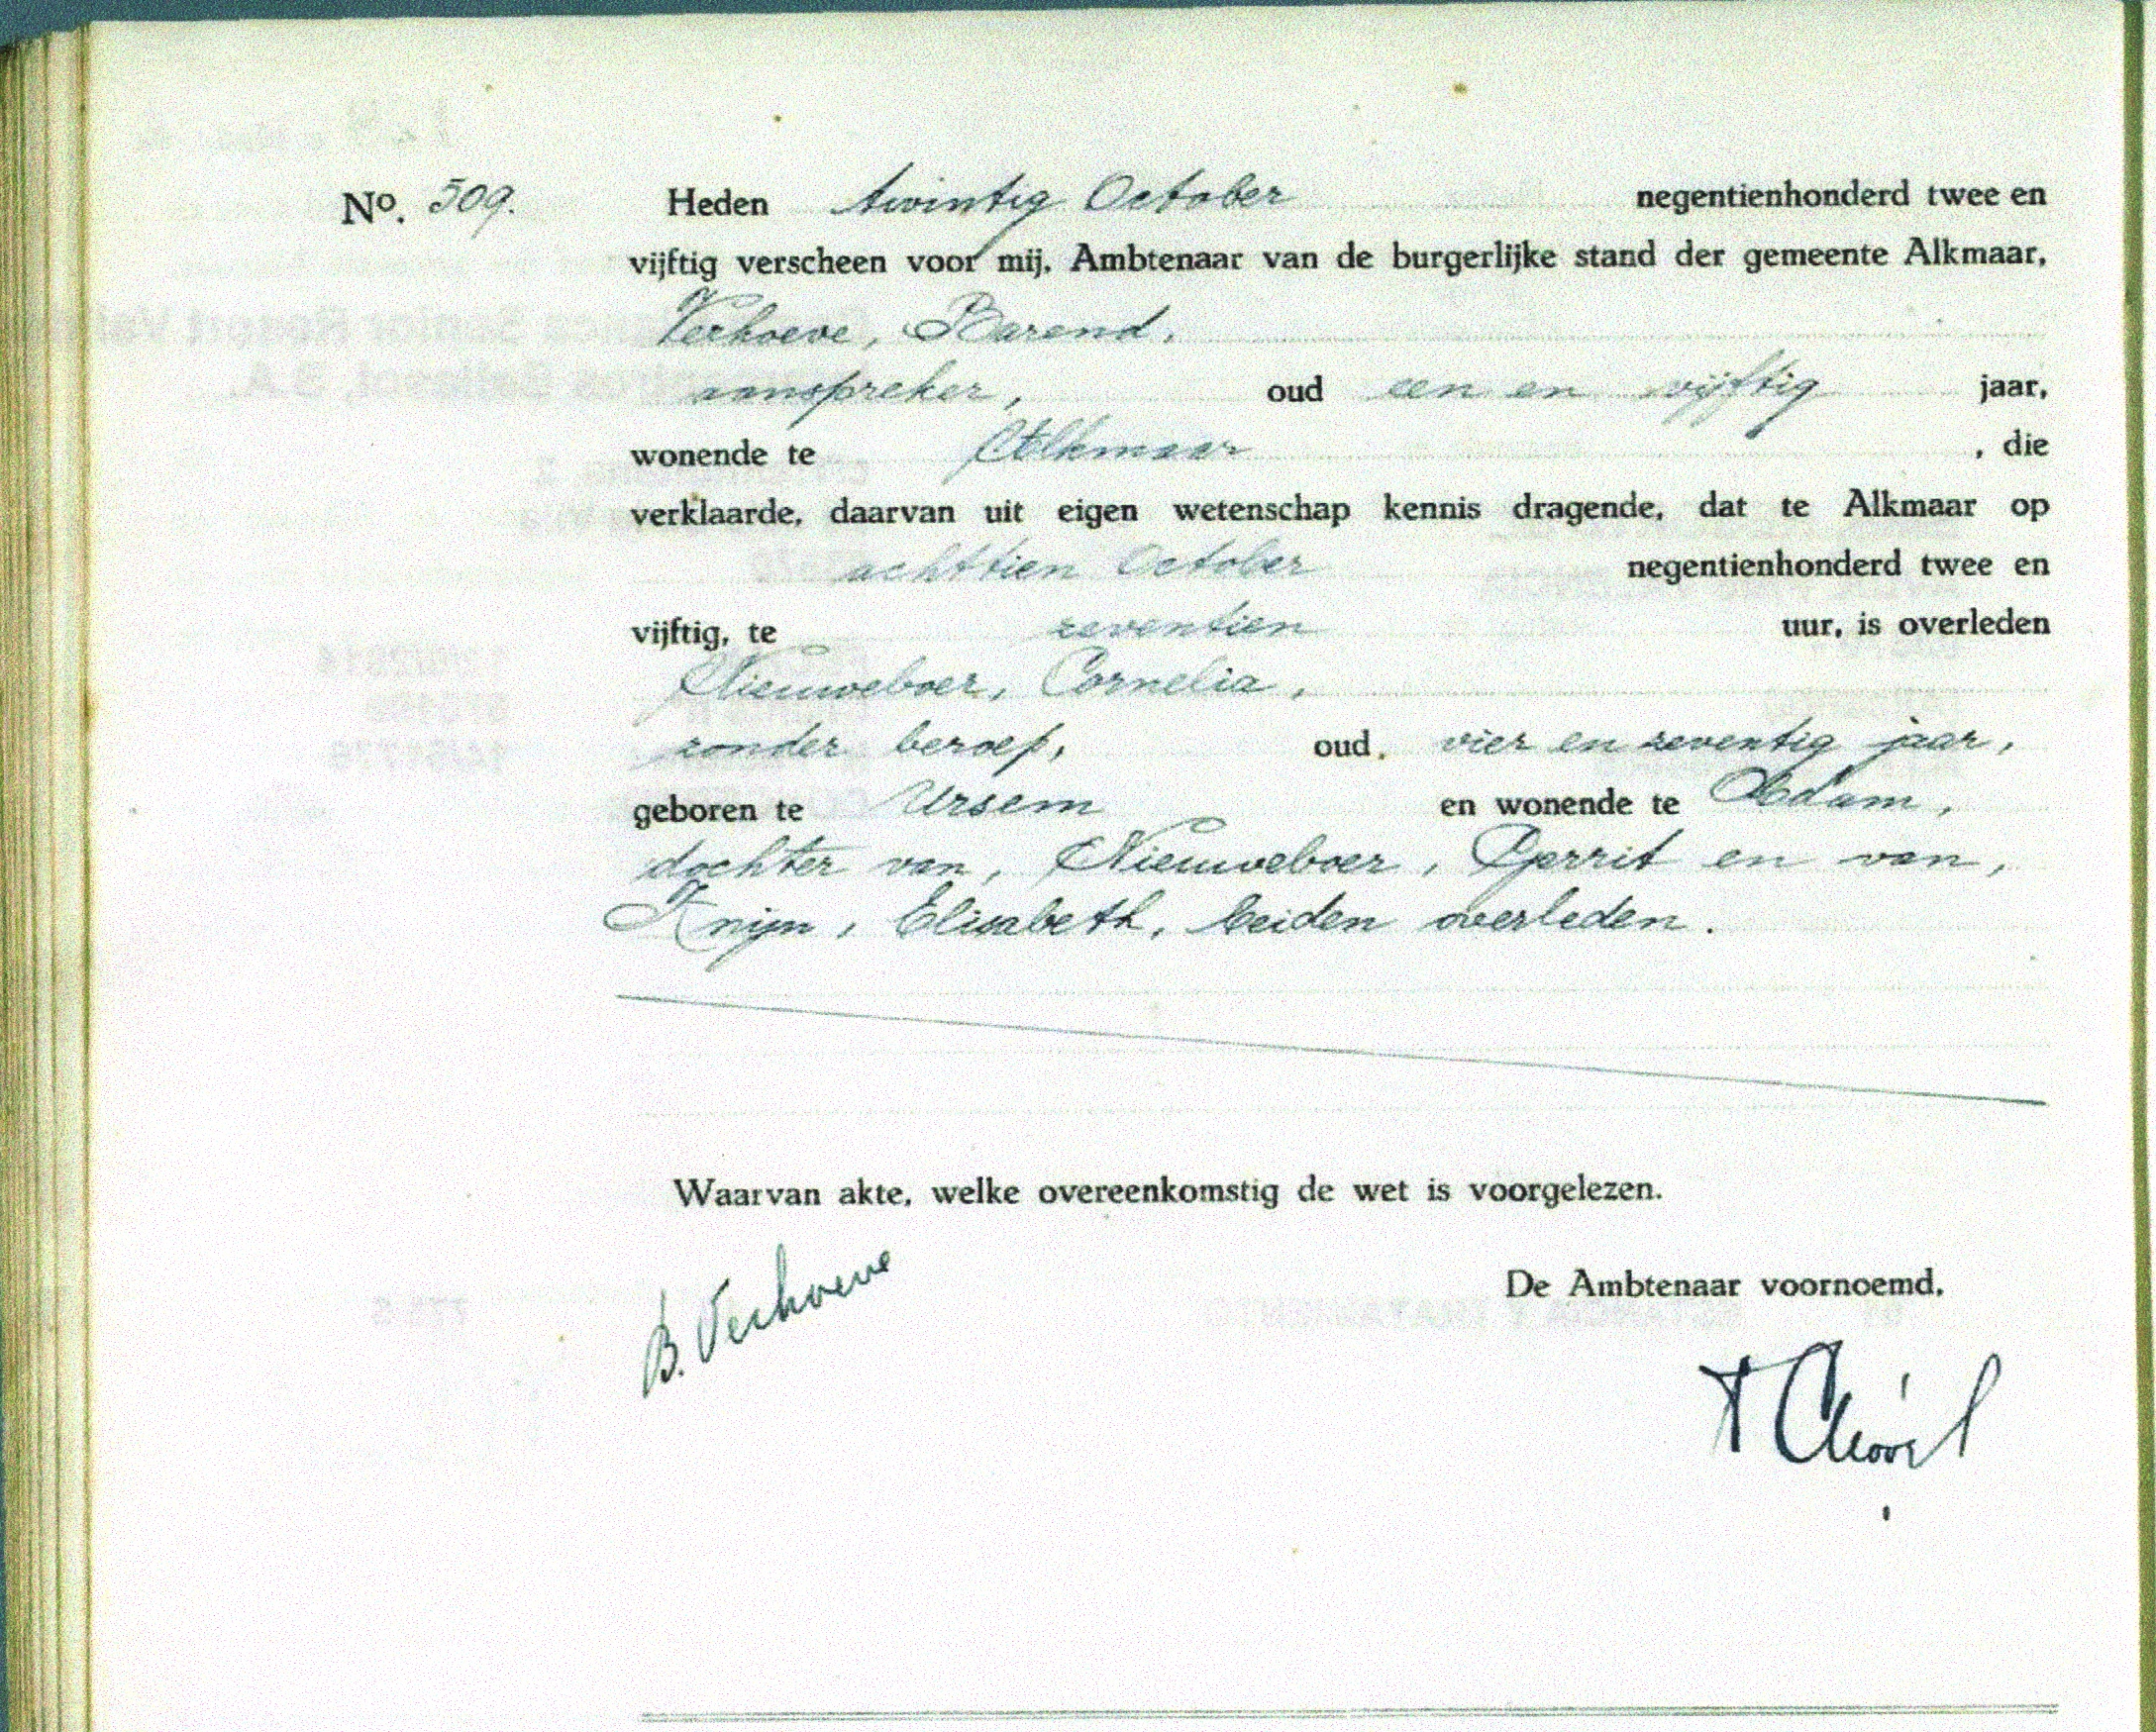 No. 509. Heden twintig October negentienhonderd twee en
vijftig verscheen voor mij, Ambtenaar van de burgerlijke stand der gemeente Alkmaar,
Verhoeve, Barend,
aanspreker, oud een en vijftig jaar,
wonende te Alkmaar , die
verklaarde, daarvan uit eigen wetenschap kennis dragende, dat te Alkmaar op
achttien October negentienhonderd twee en
vijftig, te zeventien uur, is overleden
Nieuweboer, Cornelia,
zonder beroep, oud, vier en zeventig jaar,
geboren te Ursem en wonende te Obdam,
dochter van, Nieuweboer, Gerrit en van,
Knijn, Elisabeth, beiden overleden.
Waarvan akte, welke overeenkomstig de wet is voorgelezen.
De Ambtenaar voornoemd,
B. Verhoeve